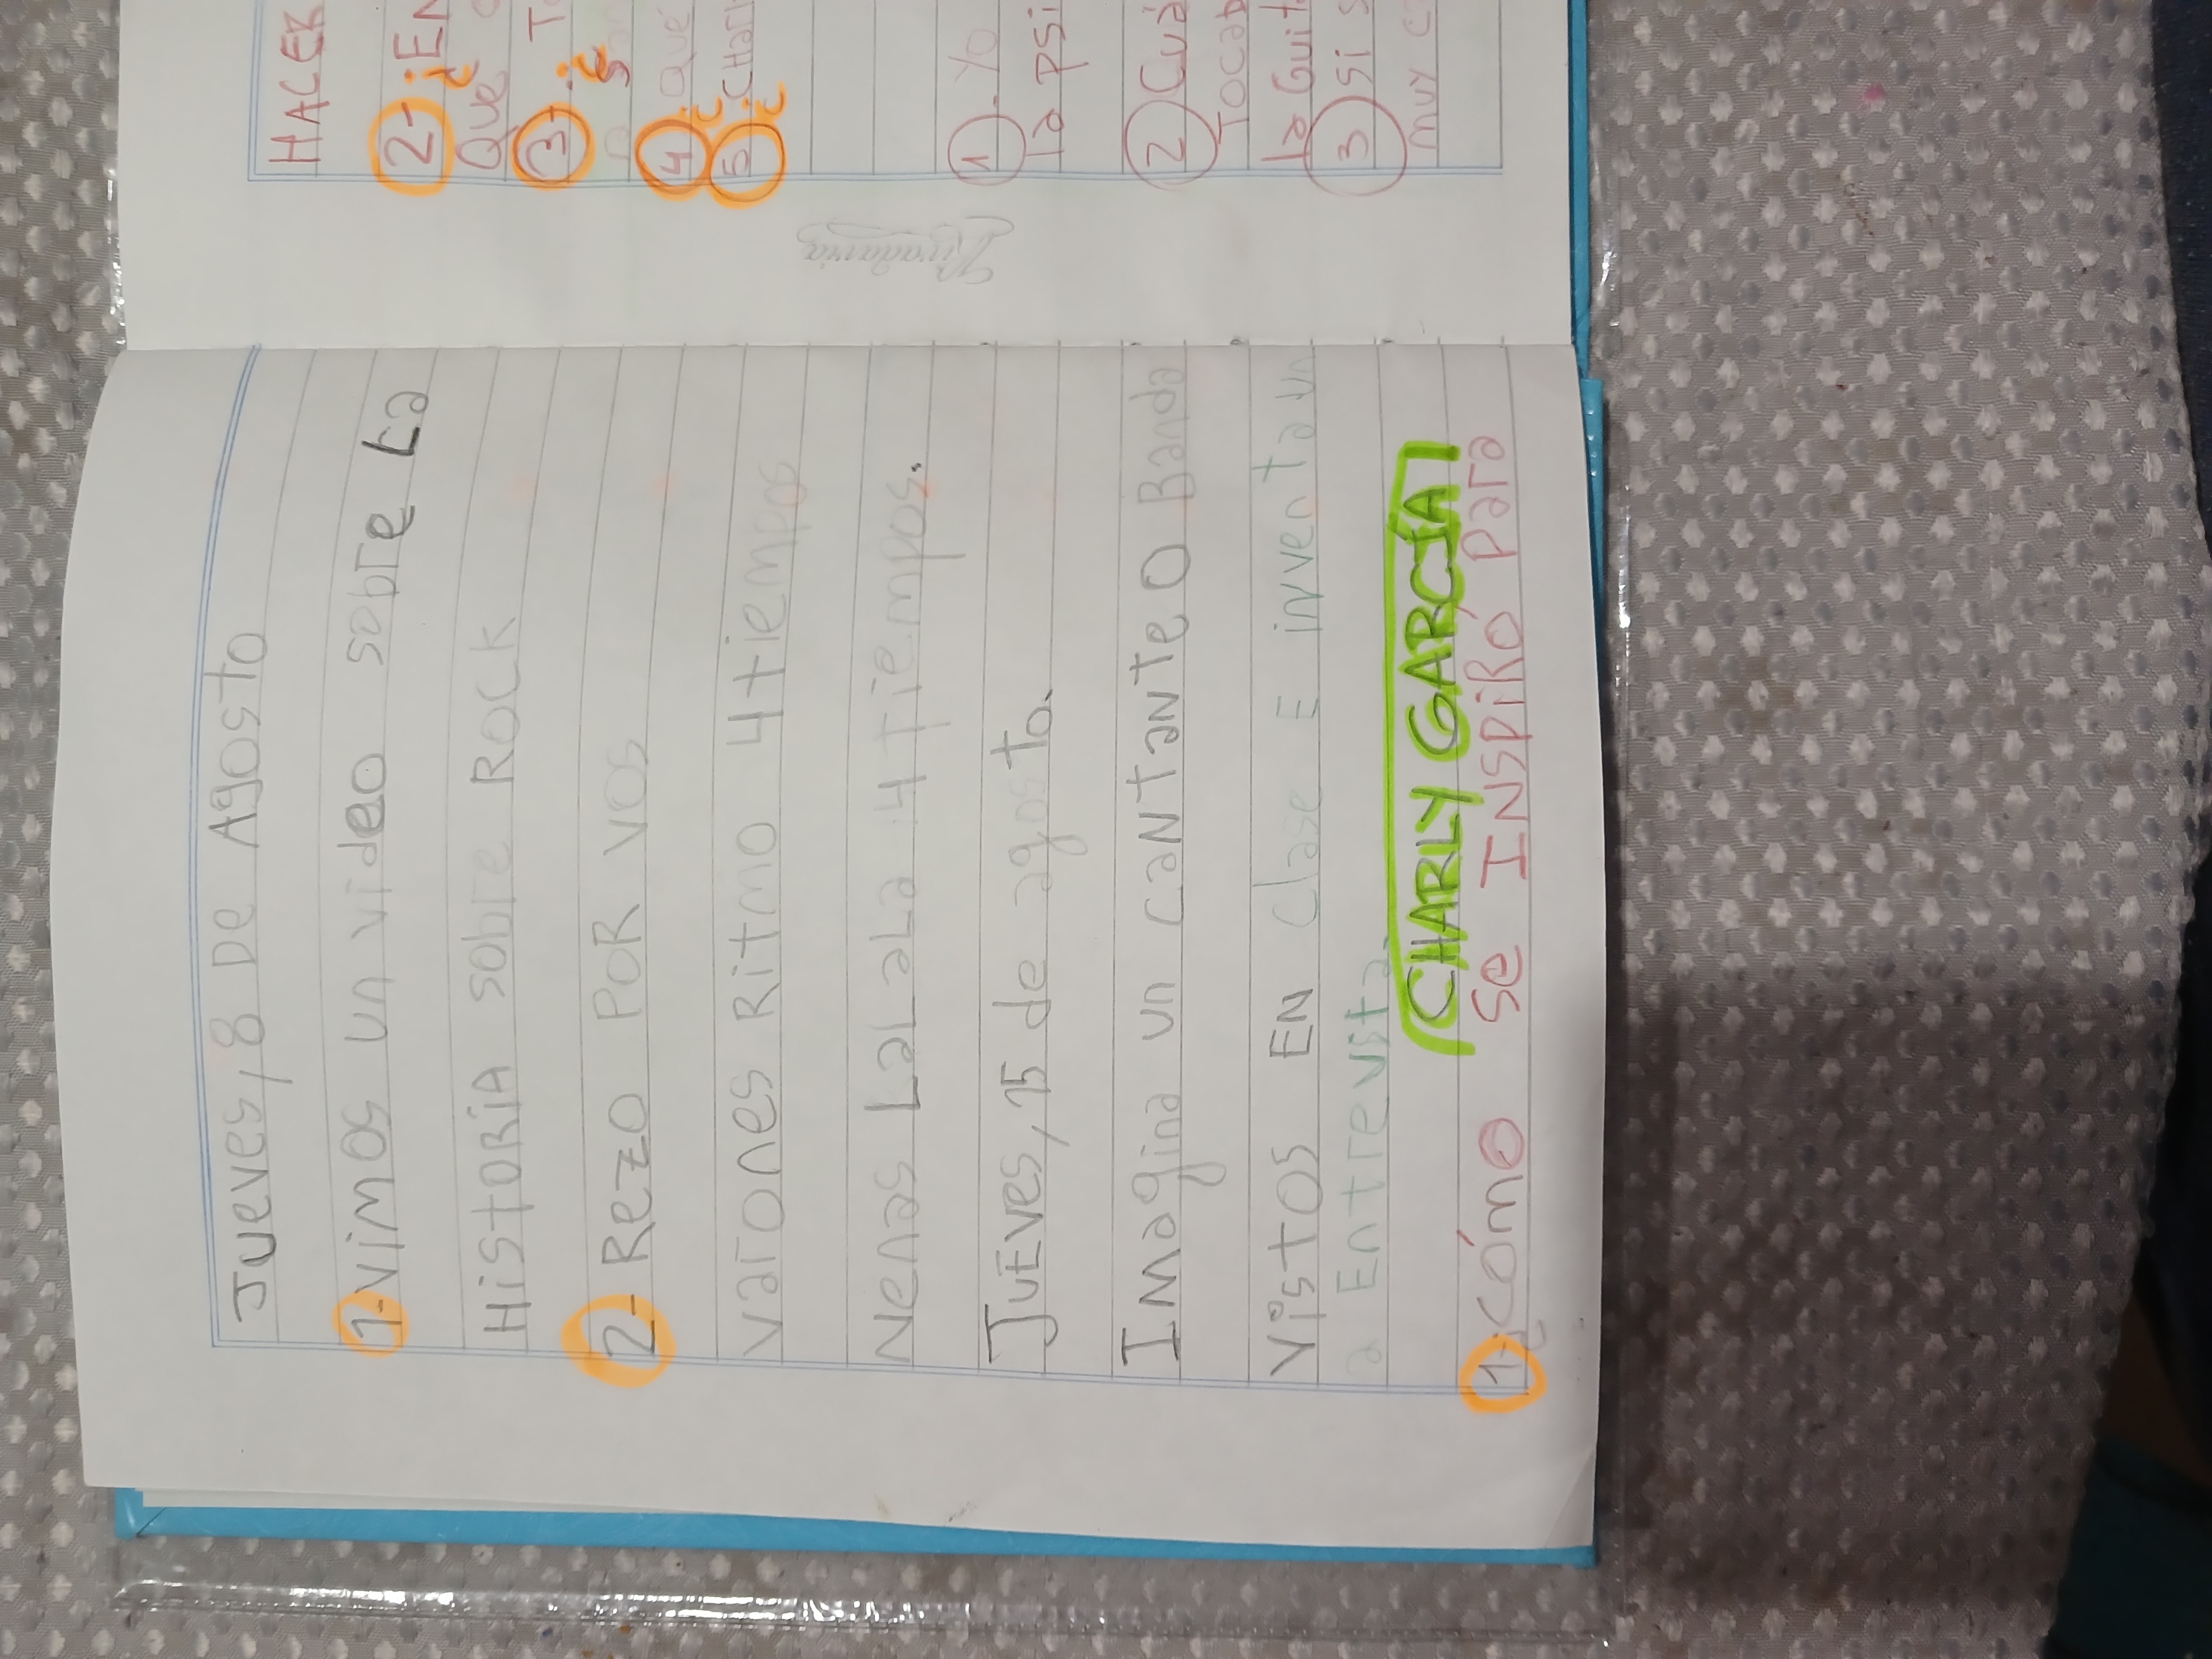 Jueves, 8 De Agosto
1-Vimos un video sobre La
HistoRiA sobre ROCK
2- Rezo POR vos
varones Ritmo 4 tiempos
Nenas LaLaLa 4 Tiempos.
JuEves, 15 de agosto.
Imagina un cantante O Banda
Vistos EN Clase E inventa un
a Entrevista.
CHARLY GARCÍA
1-¿Cómo se INSpiRó para
HACER
2-¿EN
Que
3-¿T
4-¿Qué
5-¿CHarl
1-Yo
la psi
2 Cuá
TOCab
la Guit
3 Si s
muy c
Rivadavia